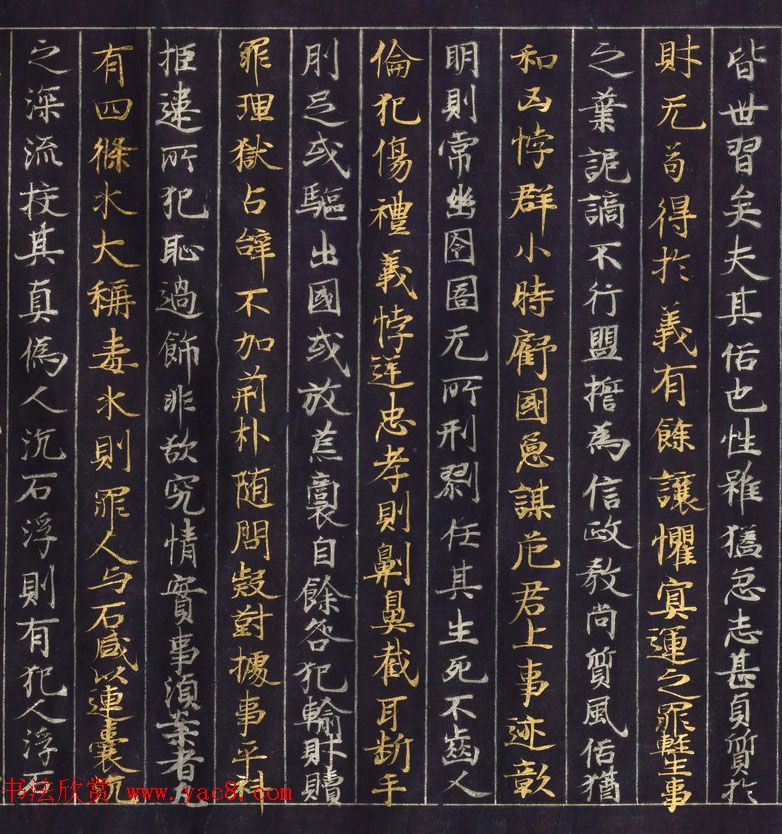 皆世習矣夫其俗也性雖獧急志甚貞質於
財无苟得於義有餘讓懼冥運之罪輕生事
之業詭譎不行盟誓為信政教尚質風俗猶
和凶悖群小時虧國憲謀危君上事迹彰
明則常幽囹圄无所刑戮任其生死不齒人
倫犯傷禮義悖逆忠孝則劓鼻截耳斷手
刖足或驅出國或放荒裔自餘咎犯輸財贖
罪理獄占辭不加荊朴随問欵對據事平科
拒違所犯恥過飾非欲究情實事湏案者凡
有四條水火稱毒水則罪人与石盛以連囊沉
之深流校其真偽人沉石浮則有犯人浮石
书法欣赏 www.yac8.com